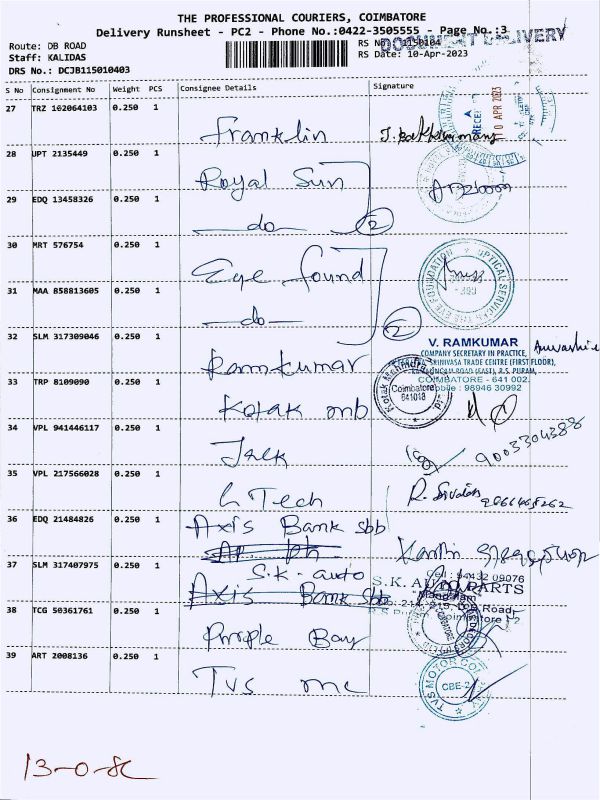 THE PROFESSIONAL COURIERS, COIMBATORE
Delivery Runsheet - PC2 - Phone No.:0422-3505555 - Page No.:3
DOCUMENT DELIVERY
Route: DB ROAD
RS No 1150104
Staff: KALIDAS
RS Date: 10-Apr-2023
DRS No.: DCJB115010403
S No Consignment No Weight PCS Consignee Details Signature
27 TRZ 102064103 0.250 1
10 APR 2023
Franklin
28 UPT 2135449 0.250 1
Royal Sun
29 EDQ 13458326 0.250 1
do 2
30 MRT 576754 0.250 1
Eye found
EYE FOUNDATION OPTICAL SERVICES
31 MAA 858813605 0.250 1
do 2
32 SLM 317309046 0.250 1
V. RAMKUMAR
COMPANY SECRETARY IN PRACTICE,
SRINIVASA TRADE CENTRE (FIRST FLOOR),
ROAD (EAST), R.S. PURAM,
COIMBATORE - 641 002.
Mobile : 98946 30992
Ramkumar
33 TRP 8109090 0.250 1
Kotak Mahindra
Coimbatore
641018
Kotak mb
34 VPL 941446117 0.250 1
9003304388
Jalk
35 VPL 217566028 0.250 1
L Tech
36 EDQ 21484826 0.250 1
Axis Bank sbb
37 SLM 317407975 0.250 1
S.K. auto
Cell : 94432 09076
S.K. AUTO PARTS
Axis Bank Sbb
38 TCG 50361761 0.250 1
Purple Bay
39 ART 2008136 0.250 1
TVS mc
TVS MOTOR COMPANY
CBE-2
13-0-8c